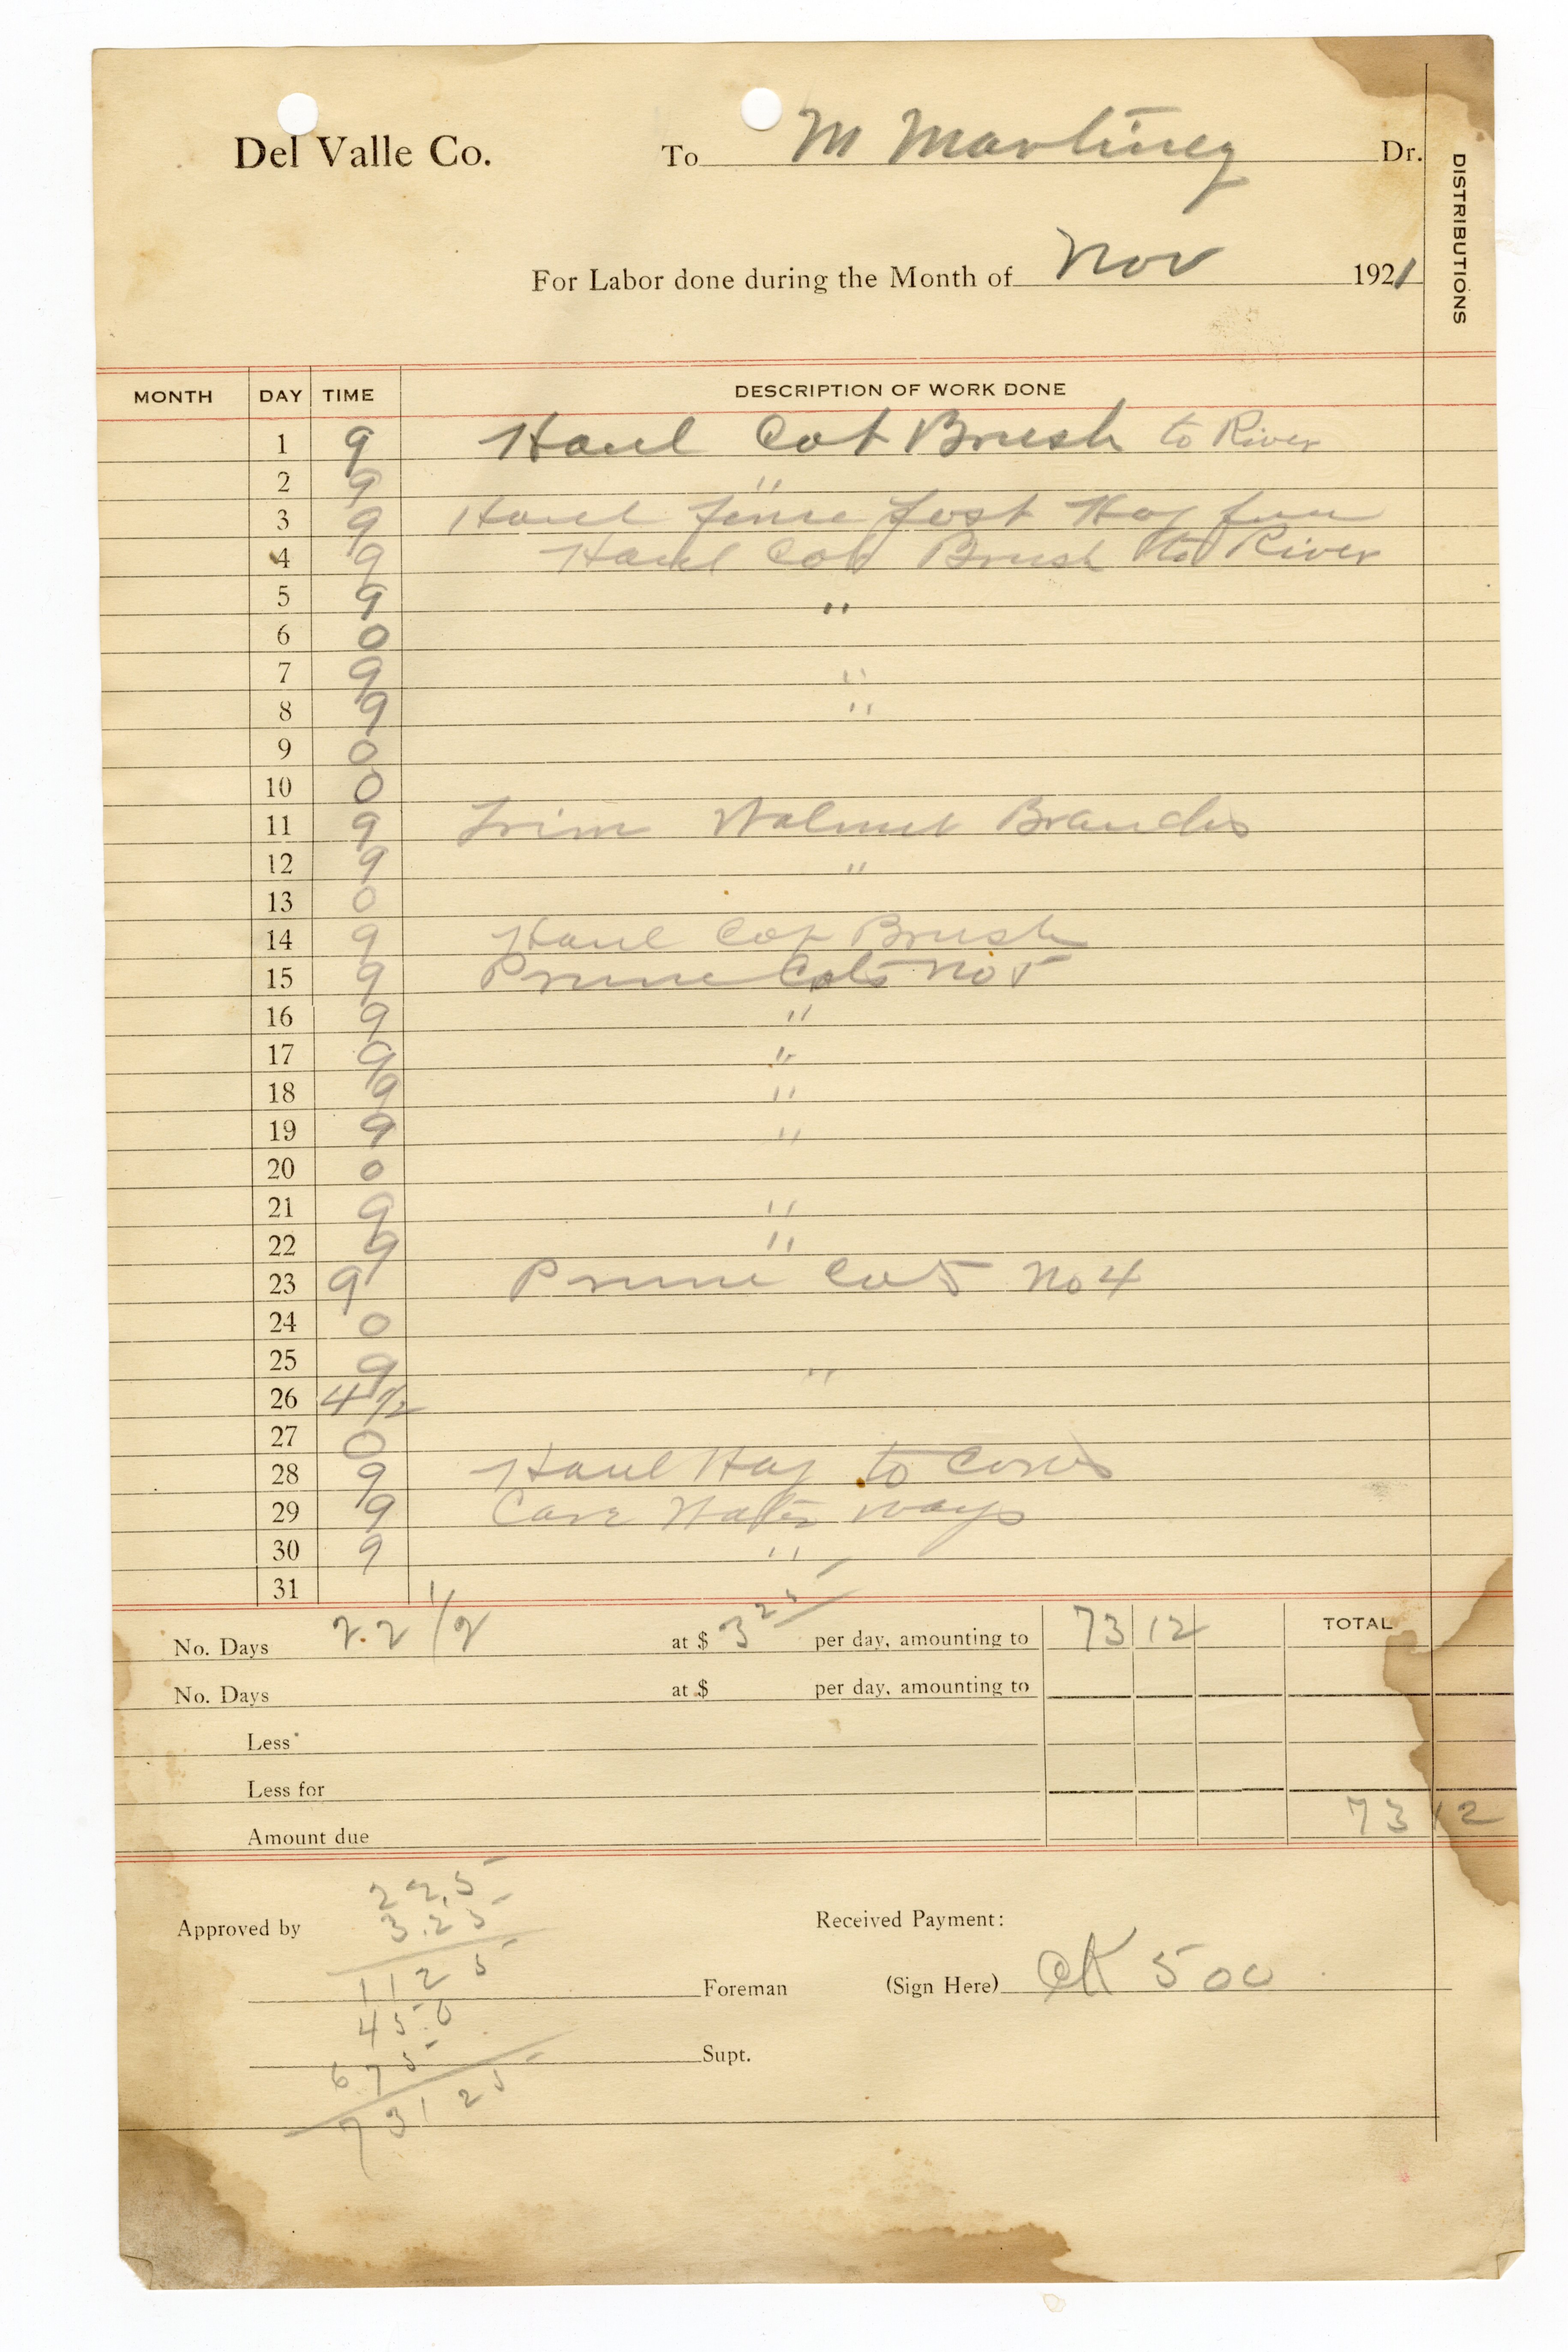 Del Valle Co. To M Martinez Dr.
DISTRIBUTIONS
For Labor done during the Month of Nov 1921
MONTH DAY TIME DESCRIPTION OF WORK DONE
1 9 Haul Cot Brush to River
2 9 "
3 9 Haul Fence Post Hog
4 9 Haul Cot Brush to River
5 9 "
6 0
7 9 "
8 9 "
9 0
10 0
11 9 Trim Walnut Branches
12 9 "
13 0
14 9 Haul Cot Brush
15 9 Prune Cots No 5
16 9 "
17 9 "
18 9 "
19 9 "
20 0
21 9 "
22 9 "
23 9 Prune Cots No 4
24 0
25 9 "
26 4 1/2
27 0
28 9 Haul Hay to Cows
29 9 Water ways
30 9 "
31
No. Days 22 1/2 at $ 3 25 per day, amounting to 73 12 TOTAL
No. Days at $ per day, amounting to
Less
Less for
Amount due 73 12
22.5
Approved by 3.25 Received Payment:
112 5
Foreman (Sign Here) CK 500
45.0
675 Supt.
73125